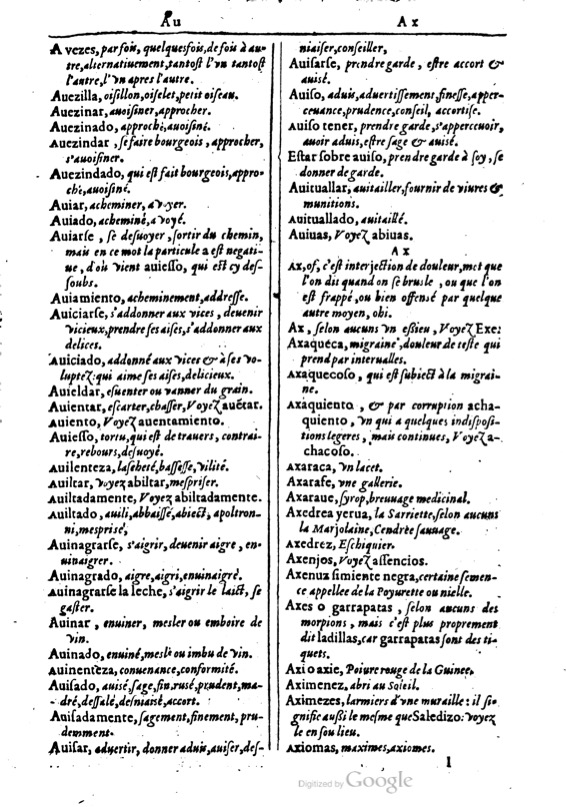 Au
A vezes, par fois, quelquesfois, de fois à au-
tre, alternatiuement, tantost l'vn tantost
l'autre, l'vn apres l'autre.
Auezilla, oisillon, oiselet, petit oiseau.
Auezinar, auoisiner, approcher.
Auezinado, approché, auoisiné.
Auezindar, se faire bourgeois, approcher,
s'auoisiner.
Auezindado, qui est fait bourgeois, appro-
ché, auoisiné.
Auiar, acheminer, a voyer.
Auiado, acheminé, a voyé.
Auiarse, se desuoyer, sortir du chemin,
mais en ce mot la particule a est negati-
ue, d'où vient auiesso, qui est cy des-
soubs.
Auiamiento, acheminement, addresse.
Auiciarse, s'addonner aux vices, deuenir
vicieux, prendre ses aises, s'addonner aux
delices.
Auiciado, addonné aux vices & à ses vo-
luptez: qui aime ses aises, delicieux.
Auieldar, esuenter ou vanner du grain.
Auientar, escarter, chasser, Voyez auētar.
Auiento, Voyez auentamiento.
Auiesso, tortu, qui est de trauers, contrai-
re, rebours, desuoyé.
Auilenteza, lascheté, bassesse, vilité.
Auiltar, voyez abiltar, mespriser.
Auiltadamente, Voyez abiltadamente.
Auiltado, auili, abbaissé, abiect, apoltron-
ni, mesprisé,
Auinagrarse, s'aigrir, deuenir aigre, en-
uinaigrer.
Auinagrado, aigre, aigri, enuinaigré.
Auinagrarse la leche, s'aigrir le laict, se
gaster.
Auinar, enuiner, mesler ou emboire de
vin.
Auinado, enuiné, meslé ou imbu de vin.
Auinenteza, conuenance, conformité.
Auisado, auisé, sage, fin, rusé, prudent, ma-
dré, dessalé, desniaisé, accort.
Auisadamente, sagement, finement, pru-
demment.
Auisar, aduertir, donner aduis, auiser, des-
Ax
niaiser, conseiller,
Auisarse, prendre garde, estre accort &
auisé.
Auiso, aduis, aduertissement, finesse, apper-
ceuance, prudence, conseil, accortise.
Auiso tener, prendre garde, s'apperceuoir,
auoir aduis, estre sage & auisé.
Estar sobre auiso, prendre garde à soy, se
donner de garde.
Auituallar, auitailler, fournir de viures &
munitions.
Auituallado, auitaillé.
Auiuas, Voyez abiuas.
A X
Ax, of, c'est interjection de douleur, mot que
l'on dit quand on se brusle, ou que l'on
est frappé, ou bien offensé par quelque
autre moyen, ohi.
Ax, selon aucuns vn essieu, Voyez Exe:
Axaqueca, migraine, douleur de teste qui
prend par interualles.
Axaquecoso, qui est subiect à la migrai-
ne.
Axaquiento, & par corruption acha-
quiento, vn qui a quelques indisposi-
tions legeres, mais continues, Voyez a-
chacoso.
Axaraca, vn lacet.
Axarafe, vne gallerie.
Axaraue, syrop, breuuage medicinal.
Axedrea yerua, la Sarriette, selon aucuns
la Marjolaine, Cendrée sauuage.
Axedrez, Eschiquier.
Axenjos, Voyez assencios.
Axenuz simiente negra, certaine semen-
ce appellee de la Poyurette ou nielle.
Axes o garrapatas, selon aucuns des
morpions, mais c'est plus proprement
dit ladillas, car garrapatas sont des ti-
quets.
Axi o axie, Poiure rouge de la Guinee.
Aximenez, abri au Soleil.
Aximezes, larmiers d'vne muraille: il si-
gnifie aussi le mesme que Saledizo: voyez
le en son lieu.
Axiomas, maximes, axiomes.
I
Digitized by Google